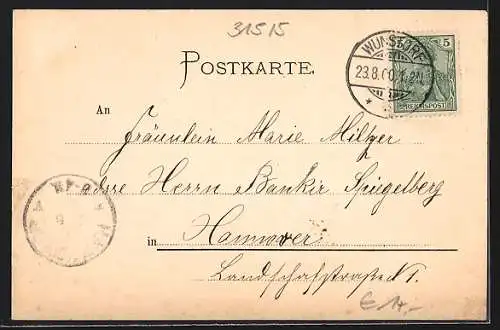 31515
POSTKARTE.
WUNSTORF
23.8.00.1-2N.
5
REICHSPOST
An
Fräulein Marie Miltzer
adrse Herrn Bankir Spiegelberg
in Hannover.
Landschaftstraße N 1.
€ 14,-